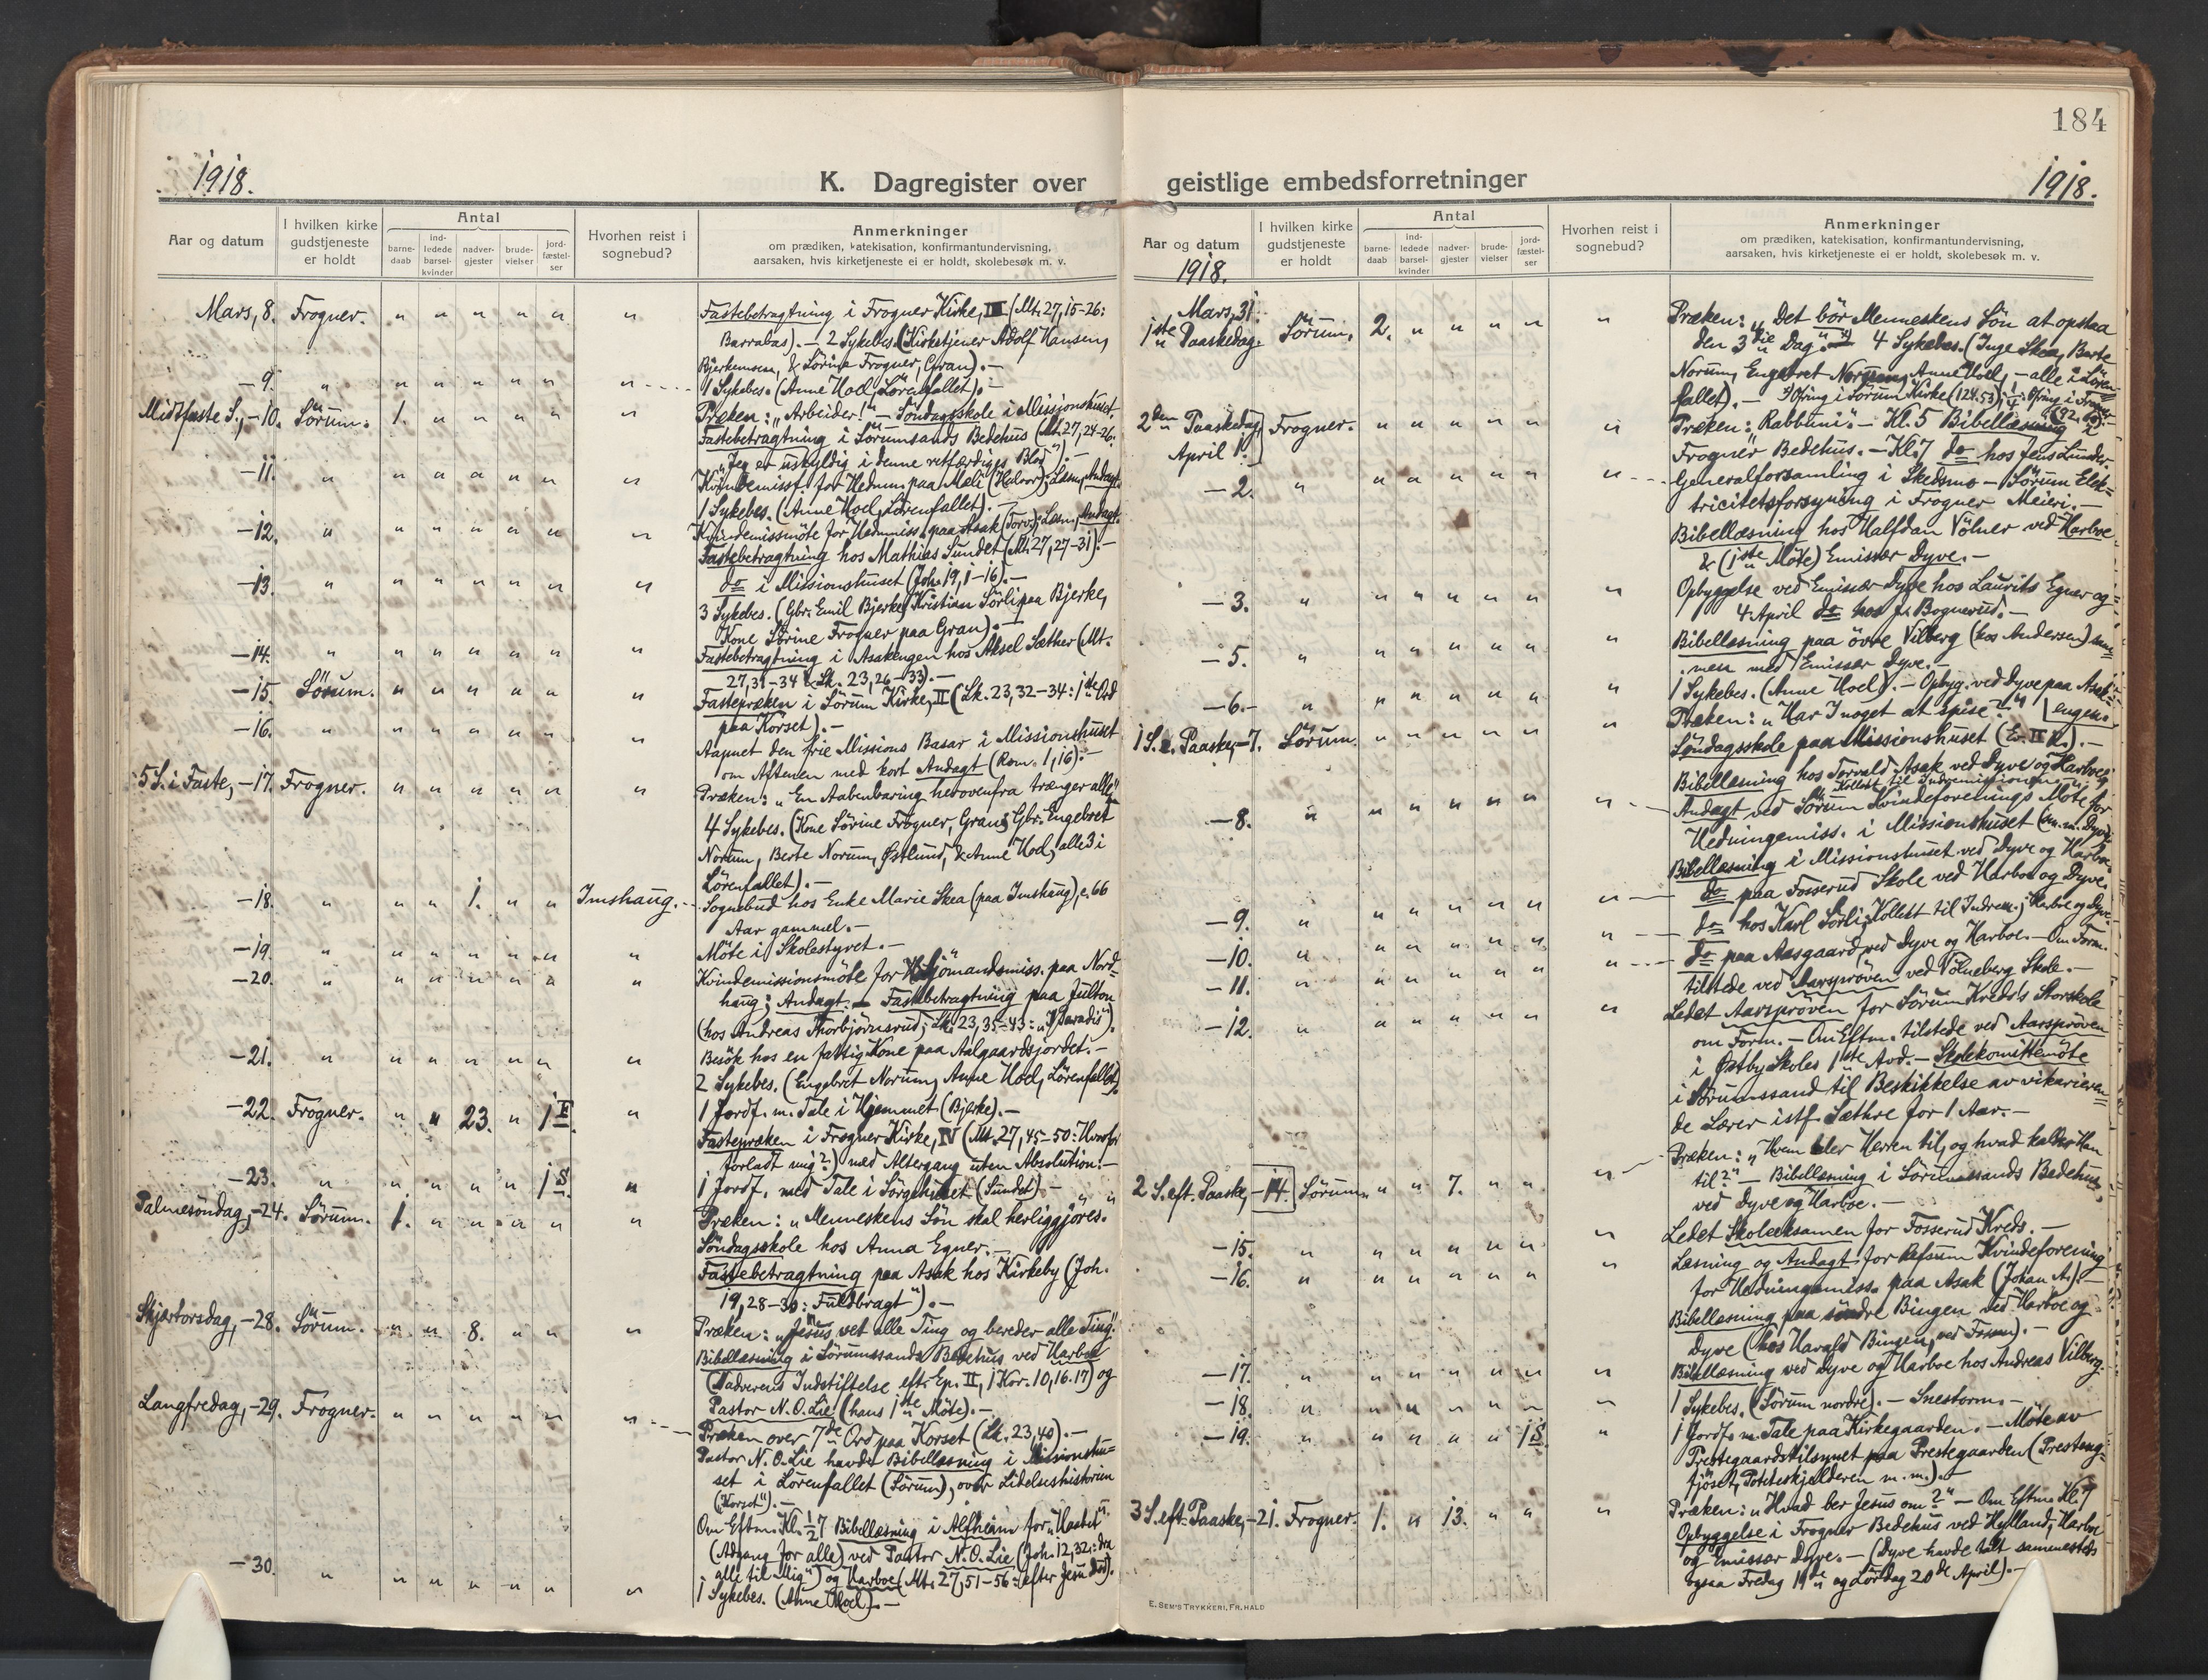 1918.
K. Dagregister over
Aar og datum
I hvilken kirke gudstjeneste er holdt
Antal
barne-daab
ind-ledede barsel-kvinder
nadver-gjester
brude-vielser
jord-fæstel-ser
Hvorhen reist i sognebud?
Anmerkninger
om prædiken, katekisation, konfirmantundervisning,
aarsaken, hvis kirketjeneste ei er holdt, skolebesøk m. v.
Mars, 8. Frogner. " " " " " " Fastebetragtning i Frogner Kirke, III (Mt. 27, 15-26:
Barrabas). – 2 Sykebes. (Kirketjener Adolf Hansen,
& Sörine Frogner, Gran). –
– 9. " " " " " " " 1 Sykebes. (Anne Hoel, Lörenfallet). –
Midtfaste S., – 10. Sörum. 1. " " " " " Præken: „Arbeider!" – Söndagsskole i Missionshuset.
Fastebetragtning i Sörumsands Bedehus (Mt. 27, 24-26:
„Jeg er uskyldig i denne retfærdiges Blod"). –
– 11. " " " " " " " Kvindemissf. for Hedn.m. paa Mæli (Halvor); Læsn., Andagt.
1 Sykebes. (Anne Hoel, Lörenfallet). –
– 12. " " " " " " " Kvindemissmöte for Hednmiss. paa Asak (Torv.); Læsn., Andagt.
Fastebetragtning hos Mathias Sundet (Mt. 27, 27-31). –
– 13. " " " " " " " do i Missionshuset (Joh. 19, 1-16). –
3 Sykebes. (Gbr. Emil Bjerke, Kristian Sörli paa Bjerke,
Kone Sörine Frogner paa Gran). –
– 14. " " " " " " " Fastebetragtning i Asakengen hos Aksel Sæther (Mt.
27, 31-34 & Lk. 23, 26-33). –
– 15. Sörum. " " " " " " Fastepræken i Sörum Kirke, II (Lk. 23, 32-34: 1ste Ord
paa Korset). –
– 16. " " " " " " " Aapnet den frie Missions Basar i Missionshuset
om Aftenen med kort Andagt (Rom. 1, 16). –
5 S. i Faste, – 17. Frogner. " " " " " " Præken: „En Aabenbaring herovenfra trænger alle".
4 Sykebes. (Kone Sörine Frogner, Gran; Gbr. Engebret
Norum, Berte Norum, Østlund, & Anne Hoel, alle 3 i
Lörenfallet). –
– 18. " " " 1. " " Imshaug. Sognebud hos Enke Marie Skea (paa Imshaug), c. 66
Aar gammel. –
– 19. " " " " " " " Möte i Skolestyret. –
– 20. " " " " " " " Kvindemissionsmöte for Sjömandsmiss. paa Nord-
haug; Andagt. – Fastebetragtning paa Julton
(hos Andreas Thorbjörnsrud; Lk. 23, 35-43: „Paradis").
– 21. " " " " " " " Besök hos en fattig Kone paa Aalgaardsjordet. –
2 Sykebes. (Engebret Norum, Anne Hoel, Lörenfallet).
– 22. Frogner. " " 23. " 1 F. " 1 Jordf. m. Tale i Hjemmet (Bjerke). –
Fastepræken i Frogner Kirke, IV (Mt. 27, 45-50: Hvorfor
forladt mig?) med Altergang uten Absolution. –
– 23. " " " " " 1 S. " 1 Jordf. med Tale i Sörgehuset (Sundet). –
Palmesöndag, – 24. Sörum. 1. " " " " " Præken: „Menneskens Sön skal herliggjöres."
Söndagsskole hos Anna Egner. –
Fastebetragtning paa Asak hos Kirkeby (Joh.
19, 28-30: Fuldbragt"). –
Skjærtorsdag, – 28. Sörum. " " 8. " " " Præken: „Jesus vet alle Ting og bereder alle Ting".
Bibellæsning i Sörumssands Bedehus ved Harboe
(Nadverens Indstiftelse eft. Ep. II, 1 Kor. 10, 16-17) og
Pastor N. O. Lie (hans 1ste Möte). –
Langfredag, – 29. Frogner. " " " " " " Præken over 7de Ord paa Korset (Lk. 23, 46). –
Pastor N. O. Lie havde Bibellæsning i Missionshu-
set i Lörenfallet (Sörum), over Lidelseshistorien
(„Korset"). –
Om Eftm. Kl. ½7 Bibellæsning i Alfheim for „Haabet"
(Adgang for alle) ved Pastor N. O. Lie (Joh. 12, 32: dra
alle til Mig") og Harboe (Mt. 27, 51-56: efter Jesu Död).
– 30. " " " " " " " 1 Sykebes. (Anne Hoel). –
184
geistlige embedsforretninger
1918.
Aar og datum
1918.
I hvilken kirke gudstjeneste er holdt
Antal
barne-daab
ind-ledede barsel-kvinder
nadver-gjester
brude-vielser
jord-fæstel-ser
Hvorhen reist i sognebud?
Anmerkninger
om prædiken, katekisation, konfirmantundervisning,
aarsaken, hvis kirketjeneste ei er holdt, skolebesøk m. v.
Mars, 31.
1ste Paaskedag. Sörum. 2. " " " " " Præken: „Det bör Menneskens Sön at opstaa
den 3die Dag." – 4 Sykebes. (Inge Skea, Berte
Norum, Engebret Norum, Anne Hoel, – alle i Lören-
fallet). – Ofring i Sörum Kirke (124.53);
2den Paaskedag, April 1. Frogner. " " " " " " Præken: „Rabbuni". – Kl. 5 Bibellæsning i
Frogner Bedehus. – Kl. 7 do hos Jens Lunder.
– 2. " " " " " " " Generalforsamling i Skedsmo – Sörum Elek-
tricitetsforsyning i Frogner Meieri. –
Bibellæsning hos Halfdan Völner ved Harboe
& (1ste Möte) Emissær Dyve. –
– 3. " " " " " " " Opbyggelse ved Emissær Dyve hos Laurits Egner og
4 April do hos J. Bognerud. –
– 5. " " " " " " " Bibellæsning paa övre Vilberg (hos Andersen) sam-
men med Emissær Dyve. –
– 6. – " " " " " " " 1 Sykebes. (Anne Hoel). – Opbyg. ved Dyve paa Asak-
engen.
1 S. e. Paaske, – 7. Sörum. " " " " " " Præken: „Har I noget at spise?"
Söndagsskole paa Missionshuset (Ev. II R.). –
Bibellæsning hos Torvald Asak ved Dyve og Harboe;
Kollekt til Indremissionen.
– 8. " " " " " " " Andagt ved Sörum Kvindeforenings Möte for
Hedningemiss. i Missionshuset (sm. m. Dyve).
Bibellæsning i Missionshuset ved Dyve og Harboe.
– 9. " " " " " " " do paa Fosserud Skole ved Harboe og Dyve.
– 10. " " " " " " " do hos Karl Sörli; Kollekt til Indrem.; Harboe og Dyve.
– 11. " " " " " " " do paa Aasgaard, ved Dyve og Harboe. – Om Form.
tilstede ved Aarspröven ved Völneberg Skole. –
– 12. " " " " " " " Ledet Aarspröven for Sörum Kreds's Storskole
om Form. – Om Eftm. tilstede ved Aarspröven
i Østby Skoles 1ste Avd. – Skolekomitémöte
i Sörumssand til Beskikkelse av vikarieren-
de Lærer istf. Sæthre for 1 Aar. –
2 S. eft. Paaske, – 14. Sörum. " " 7. " " " Præken: „Hvem taler Herren til, og hvad kalder Han
til?" – Bibellæsning i Sörumssands Bedehus
ved Dyve og Harboe. –
– 15. " " " " " " " Ledet Skoleeksamen for Fosserud Kreds. –
– 16. " " " " " " " Læsning og Andagt for Refsum Kvindeforening
for Hedningemiss. paa Asak (Johan A.). –
Bibellæsning paa söndre Bingen ved Harboe og
Dyve (hos Harald Bingen, ved Fossum). –
– 17. " " " " " " " Bibellæsning ved Dyve og Harboe hos Andreas Vilberg.
– 18. " " " " " " " 1 Sykebes. (Sörum nordre). – Snestorm. –
– 19. " " " " " 1 S. " 1 Jordf. m. Tale paa Kirkegaarden. – Möte av
Prestegaardstilsynet paa Prestegaarden (Presteng-
fjöset, Poteteskjelderen m. m.). –
3 S. eft. Paaske, – 21. Frogner. 1. " 13. " " " Præken: „Hvad ber Jesus om?" – Om Eftm. Kl. 7
Opbyggelse i Frogner Bedehus ved Hylland, Harboe
og Emissær Dyve. – (Dyve havde talt sammesteds
ogsaa Fredag 19de og Lördag 20de April). –
E. SEM'S TRYKKERI, FR. HALD